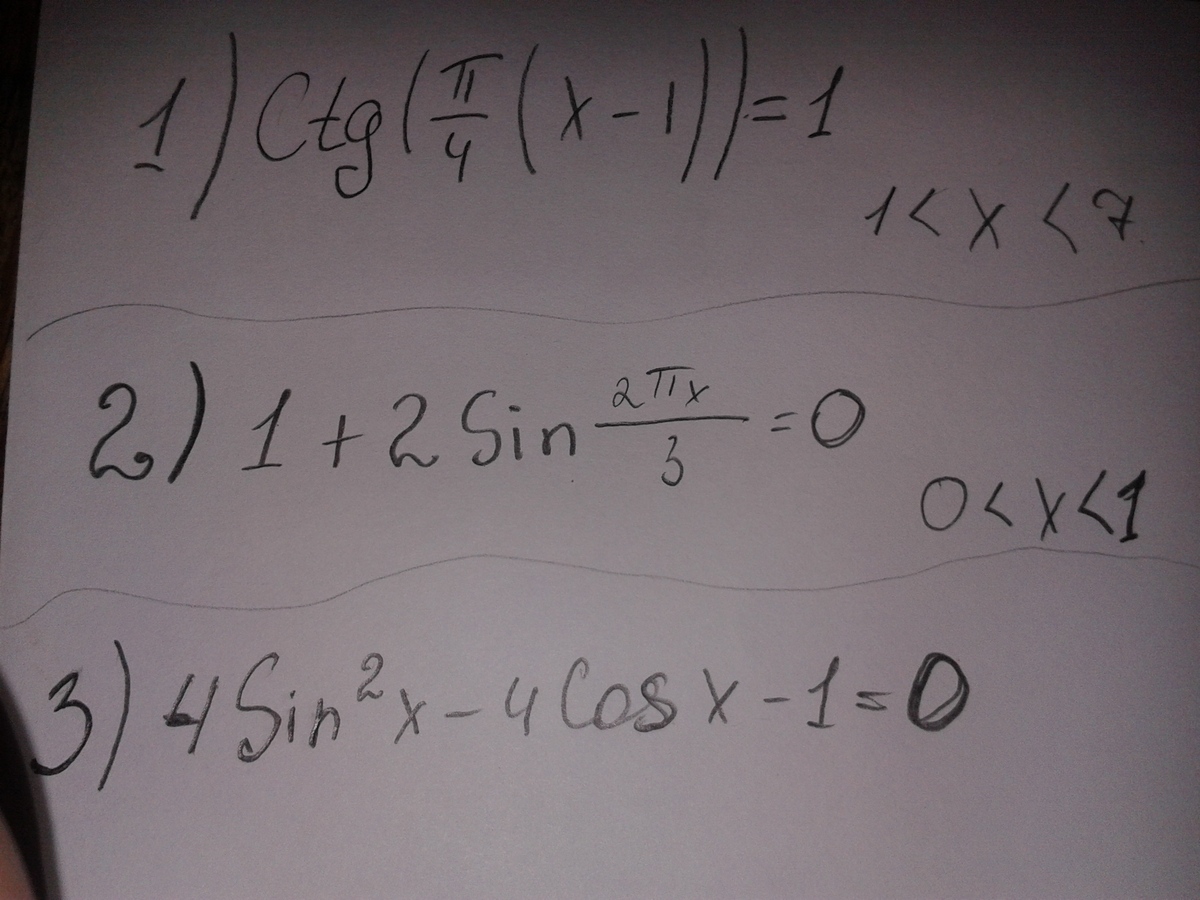 1) Ctg(π/4(x-1))=1
1<x<7.
2) 1+2Sin 2πx/3=0
0<x<1
3) 4Sin²x-4Cosx-1=0